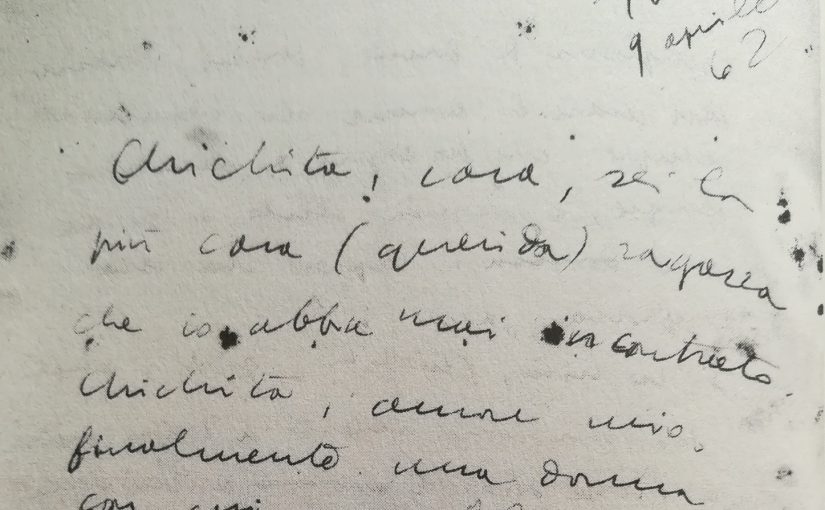 9 aprile
62
Chichita, cara, sei la
più cara (querida) ragazza
che io abbia mai incontrato.
Chichita, amore mio,
finalmente una donna
con cui